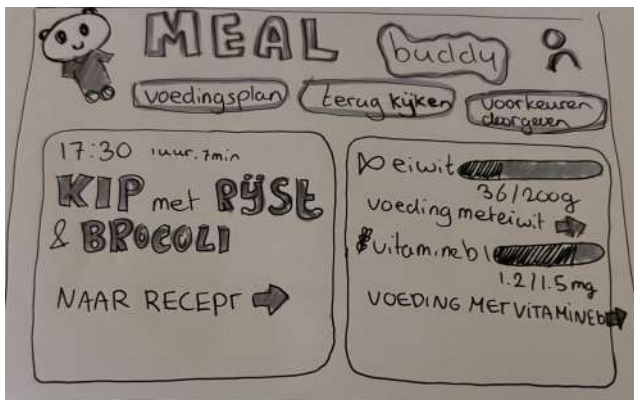 MEAL
buddy
voedingsplan
terug kijken
voorkeuren
doorgeven
17:30 1uur.7min
KIP met RIJST
& BROCOLI
NAAR RECEPT
eiwit
36/200g
voeding met eiwit
vitamine b1
1.2/1.5mg
VOEDING MET VITAMINE b